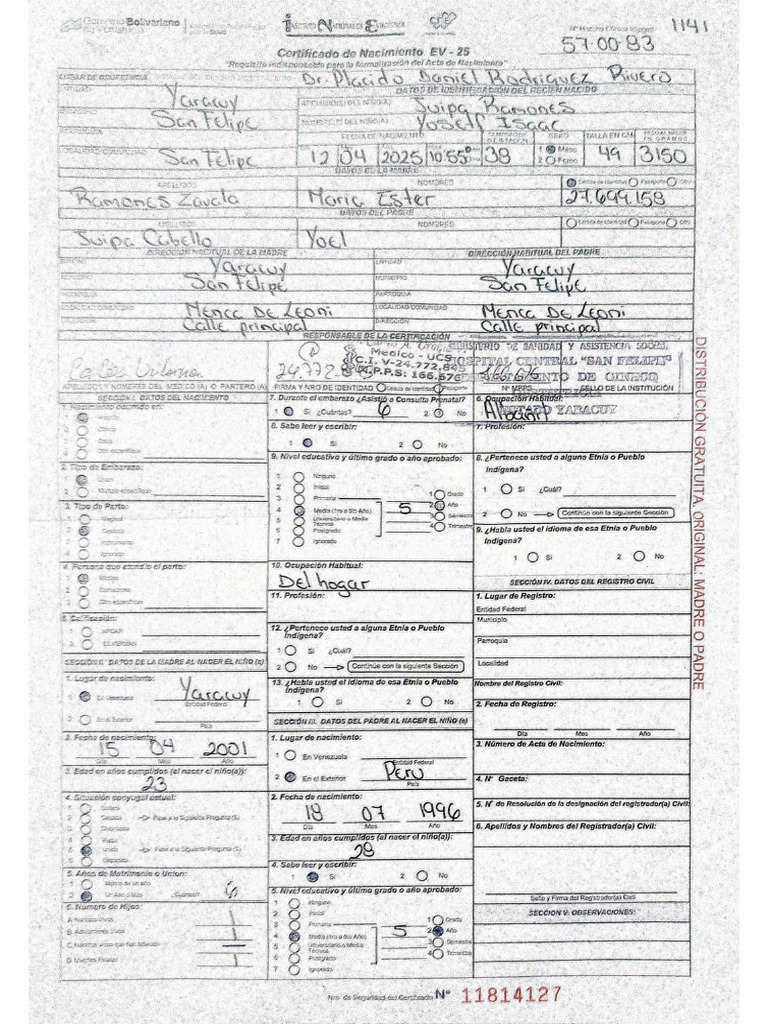 Gobierno Bolivariano
INSTITUTO NACIONAL DE ESTADÍSTICA
1141
Nº Historia Clínica
57-00-93
Certificado de Nacimiento EV - 25
"Requisito indispensable para la formalización del Acta de Nacimiento"
LUGAR DE OCURRENCIA
Dr. Placido Daniel Rodriguez Rivero
DATOS DE IDENTIFICACIÓN DEL RECIEN NACIDO
ENTIDAD Yaracuy
APELLIDOS DEL NIÑO(A) Juipa Ramones
MUNICIPIO San Felipe
NOMBRES DEL NIÑO(A) Yoseff Isaac
PARROQUIA
FECHA DE NACIMIENTO SEXO TALLA EN CM
San Felipe 12 04 2025 10:55 38 1 Masc 2 Feme 49 3150
DATOS DE LA MADRE
APELLIDOS NOMBRES Cédula de Identidad Pasaporte Otro
Ramones Zavala Maria Ester 27.699.158
DATOS DEL PADRE
APELLIDOS NOMBRES Cédula de Identidad Pasaporte Otro
Juipa Cabello Yoel
DIRECCIÓN HABITUAL DE LA MADRE DIRECCIÓN HABITUAL DEL PADRE
Yaracuy ENTIDAD Yaracuy
San Felipe MUNICIPIO San Felipe
PARROQUIA PARROQUIA
LOCALIDAD/COMUNIDAD Menca De Leoni LOCALIDAD/COMUNIDAD Menca De Leoni
Calle principal DIRECCIÓN Calle principal
RESPONSABLE DE LA CERTIFICACIÓN
Medico - UCS
C.I. V-24.772.845
M.P.P.S: 166.676
MINISTERIO DE SANIDAD Y ASISTENCIA SOCIAL
HOSPITAL CENTRAL "SAN FELIPE"
DEPARTAMENTO DE GINECO
ESTADO YARACUY
24.772.845 166.676
APELLIDOS Y NOMBRES DEL MEDICO (A) O PARTERO (A) FIRMA Y NRO DE IDENTIDAD Cédula de Identidad Pasaporte Nº MPPS SELLO DE LA INSTITUCIÓN
SECCIÓN I. DATOS DEL NACIMIENTO
1. Nacimiento ocurrido en:
1 Hospital
2 Clínica
3 Casa
4 Otro especifique
2. Tipo de Embarazo:
1 Único
2 Múltiple especifique
3. Tipo de Parto:
1 Vaginal
2 Cesárea
3 Instrumental
4 Ignorado
4. Persona que atendió el parto:
1 Médico
2 Comadrona
3 Otro especifique
5. Calificación:
1 APGAR
2 SILVERMAN
SECCIÓN II. DATOS DE LA MADRE AL NACER EL NIÑO (a)
1. Lugar de nacimiento:
1 En Venezuela Yaracuy
Entidad Federal
2 En el Exterior
País
2. Fecha de nacimiento:
15 04 2001
Día Mes Año
3. Edad en años cumplidos (al nacer el niño(a)):
23
4. Situación conyugal actual:
1 Soltera
2 Casada Pase a la Siguiente Pregunta (5)
3 Divorciada
4 Viuda
5 Unida Pase a la Siguiente Pregunta (5)
6 Separada
5. Años de Matrimonio o Union:
1 Menos de un año
2 Un Año o Más ¿Cuántos? 6
6. Número de Hijos:
A Nacidos Vivos 1
B Actualmente Vivos 1
C Nacidos vivos que han fallecido —
D Nacidos Fallec. 1
7. Durante el embarazo ¿Asistió a Consulta Prenatal?
1 Si ¿Cuántas? 6 2 No
8. Sabe leer y escribir:
1 Si 2 No
9. Nivel educativo y último grado o año aprobado:
1 Ninguno
2 Inicial
3 Primaria
4 Media (1ro a 5to Año) 5
5 Universitario o Media Técnica
6 Postgrado
7 Ignorado
1 Grado
2 Año
3 Semestre
4 Trimestre
10. Ocupación Habitual:
Del hogar
11. Profesión:
12. ¿Pertenece usted a alguna Etnia o Pueblo Indígena?
1 Si ¿Cuál?
2 No Continúe con la siguiente Sección
13. ¿Habla usted el idioma de esa Etnia o Pueblo Indígena?
1 Si 2 No
SECCIÓN III. DATOS DEL PADRE AL NACER EL NIÑO (a)
1. Lugar de nacimiento:
1 En Venezuela
Entidad Federal
2 En el Exterior Peru
País
2. Fecha de nacimiento:
18 07 1996
Día Mes Año
3. Edad en años cumplidos (al nacer el niño(a)):
28
4. Sabe leer y escribir:
1 Si 2 No
5. Nivel educativo y último grado o año aprobado:
1 Ninguno
2 Inicial
3 Primaria
4 Media (1ro a 5to Año) 5
5 Universitario o Media Técnica
6 Postgrado
7 Ignorado
1 Grado
2 Año
3 Semestre
4 Trimestre
6. Ocupación Habitual:
Albañil
7. Profesión:
8. ¿Pertenece usted a alguna Etnia o Pueblo Indígena?
1 Si ¿Cuál?
2 No Continúe con la siguiente Sección
9. ¿Habla usted el idioma de esa Etnia o Pueblo Indígena?
1 Si 2 No
SECCIÓN IV. DATOS DEL REGISTRO CIVIL
1. Lugar de Registro:
Entidad Federal
Municipio
Parroquia
Localidad
Nombre del Registro Civil:
2. Fecha de Registro:
Día Mes Año
3. Número de Acta de Nacimiento:
4. N° Gaceta:
5. N° de Resolución de la designación del registrador(a) Civil:
6. Apellidos y Nombres del Registrador(a) Civil:
Sello y Firma del Registrador(a) Civil
SECCION V: OBSERVACIONES:
DISTRIBUCIÓN GRATUITA. ORIGINAL: MADRE O PADRE
Nro. de Seguridad del Certificado N° 11814127